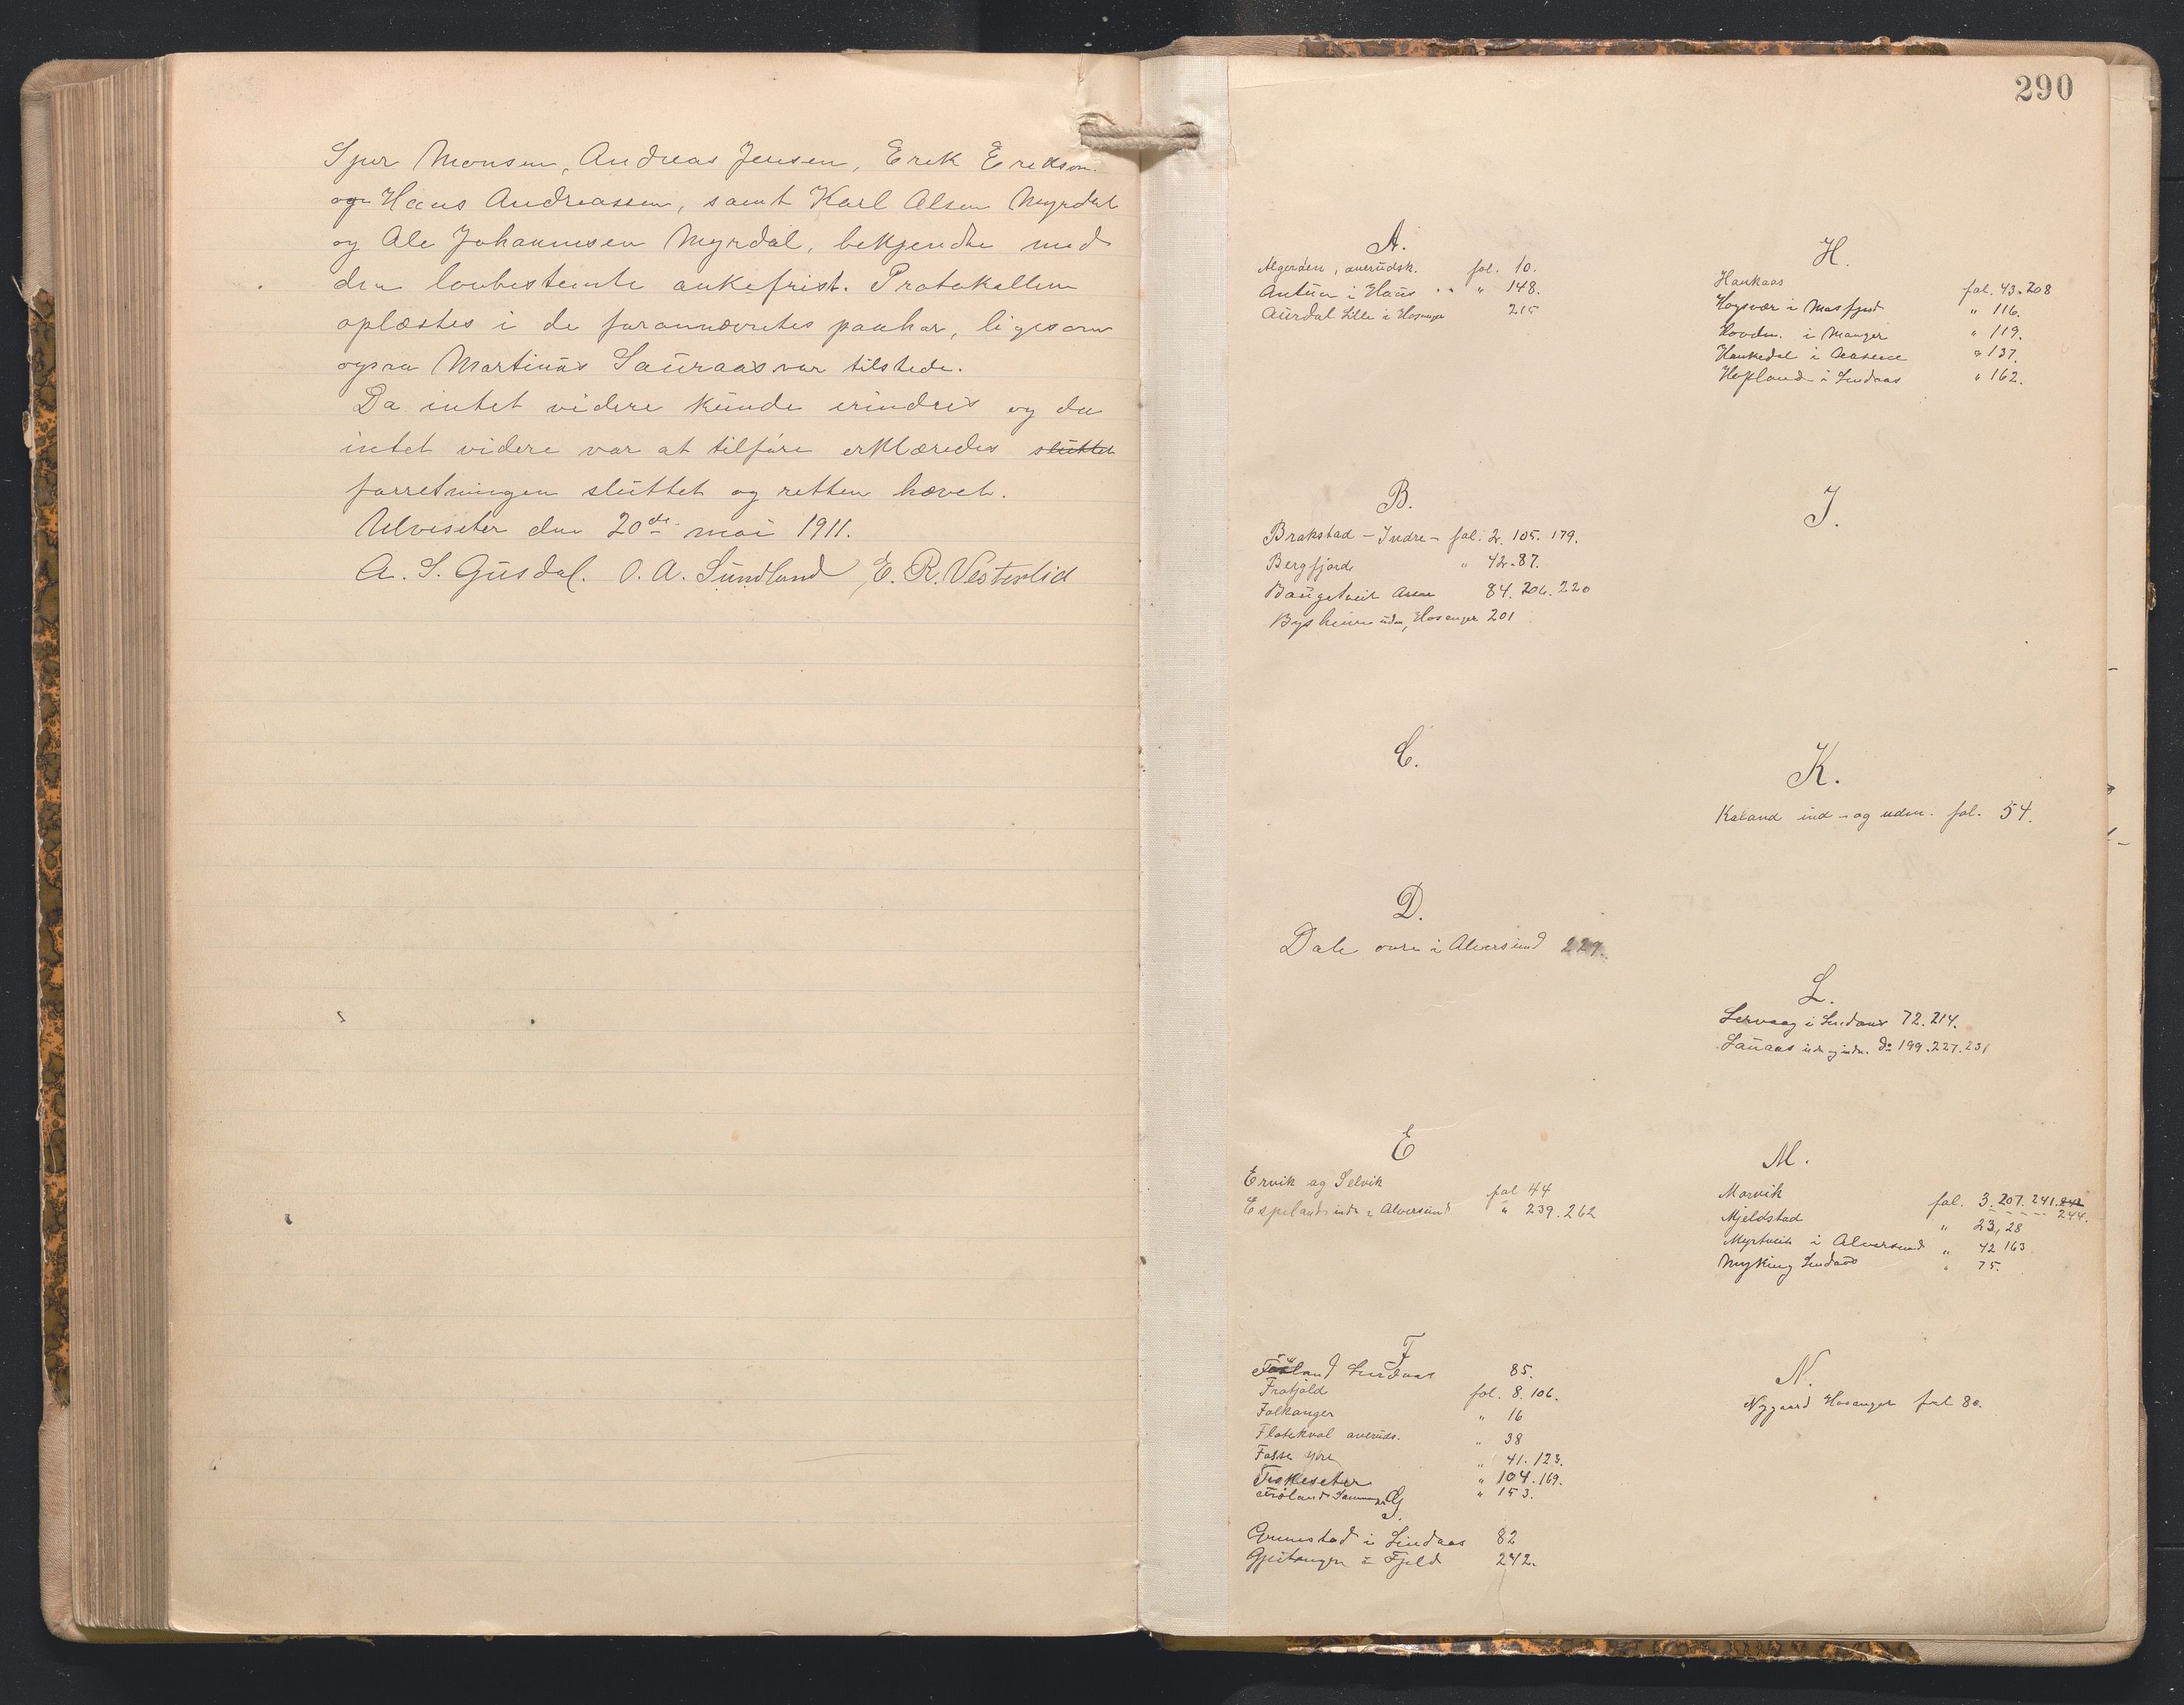 Sjur Monsen, Andreas Jensen, Erik Erikson
og Hans Andreassen, samt Karl Olsen Myrdal
og Ole Johannesen Myrdal, bekjendte med
den lovbestemte ankefrist. Protokollen
oplæstes i de forannævntes paahør, ligesom
ogsaa Martinus Sauraas var tilstede.
Da intet videre kunde erindres og da
intet videre var at tilføre erklæredes sluttet
forretningen sluttet og retten hævet.
Ulveseter den 20de mai 1911.
A. S. Gusdal. O. A. Sundland E. R. Vesterlid
290
A.
Algerøen, averudsk. fol. 10.
Antun i Haus " " 148.
Aurdal Lille i Hosanger 215
B.
Brakstad - Indre - fol. 2. 105. 179.
Bergfjord " 42. 87.
Baugstveit Asene 84. 206. 220
Bysheim uden, Hosanger 201
C.
D.
Dale øvre i Alversund 229.
E
Ervik og Selvik fol 44
Espeland indre i Alversund " 239. 262
F
Lindaas 85.
Frotjold fol. 8. 106.
Falkanger " 16
Flatekval averuds. " 38
Fosse Ytre " 41. 123.
Fiskeseter " 104. 169.
" 153.
G.
Grimstad i Lindaas 82
Gjeitanger i Fjeld 242.
H.
Haukaas fol. 43. 208
Høgsvær i Masfjord " 116.
Hovden i Manger " 119.
Haukedal i Aasene " 137.
Hopland i Lindaas " 162.
I.
K.
Kaland ind- og uden. fol. 54.
L.
Lervaag i Lindaas 72. 214.
Sauraas ude og indre. do 199. 227. 231
M.
Morvik fol. 3. 207. 241. 242
244.
Mjeldstad " 23, 28
Myrtveit i Alversund " 42 163
Myking Lindaas " 75.
N.
Nygaard Hosanger fol 80.